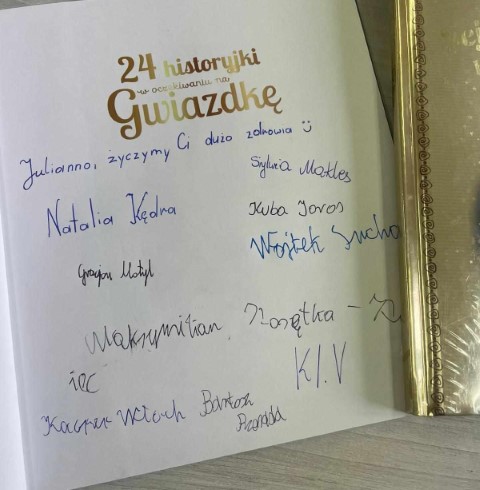 24 historyjki
w oczekiwaniu na
Gwiazdkę
Julianno, życzymy Ci dużo zdrowia
Sylwia Makles
Natalia Kędra
Kuba Jaros
Wojtek Sucho
Motyl
Maksymilian
Kl. V
Kacper Włoch
Bartosz